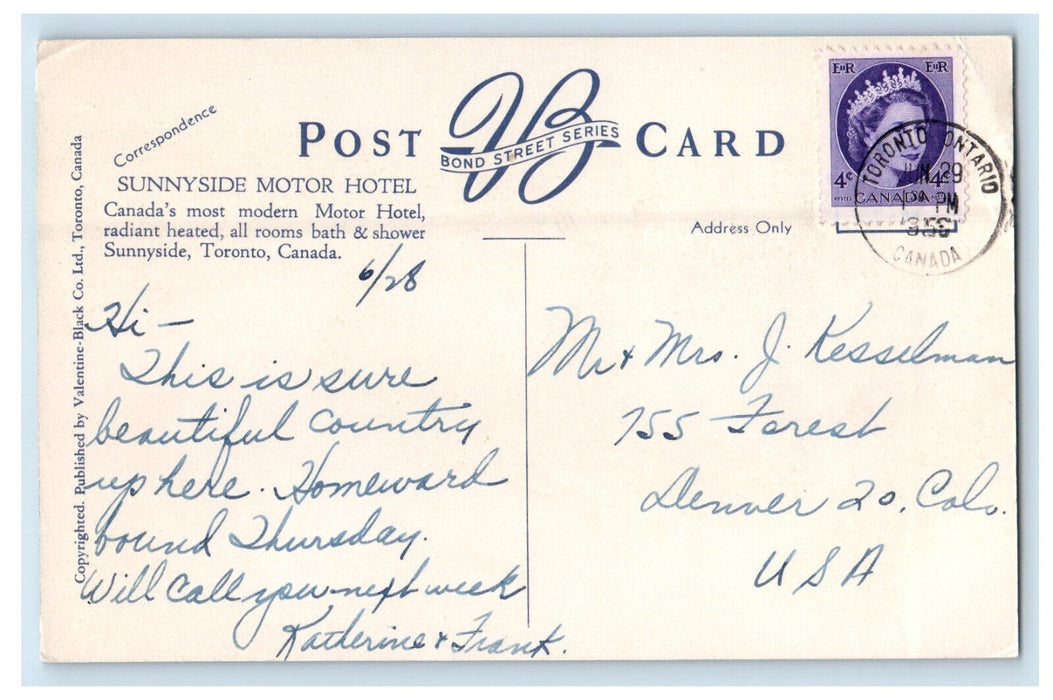 Correspondence
POST CARD
VB
BOND STREET SERIES
SUNNYSIDE MOTOR HOTEL
Canada's most modern Motor Hotel,
radiant heated, all rooms bath & shower
Sunnyside, Toronto, Canada.
Copyrighted. Published by Valentine-Black Co. Ltd., Toronto, Canada
6/28
Hi –
This is sure
beautiful country
up here. Homeward
bound Thursday.
Will call you next week
Katherine & Frank.
Address Only
EIIR EIIR
4¢ 4¢
CANADA
TORONTO ONTARIO
JUN 29
PM
CANADA
Mr & Mrs. J. Kesselman
755 Forest
Denver 20, Colo.
USA